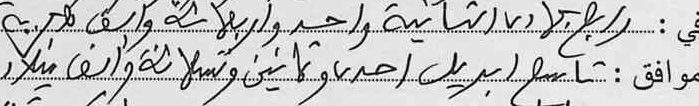 في : رابع جمادى الثانية واحد وأربعمائة وألف هجرية
موافق : تاسع ابريل احدى وثمانين وتسعمائة وألف ميلادية